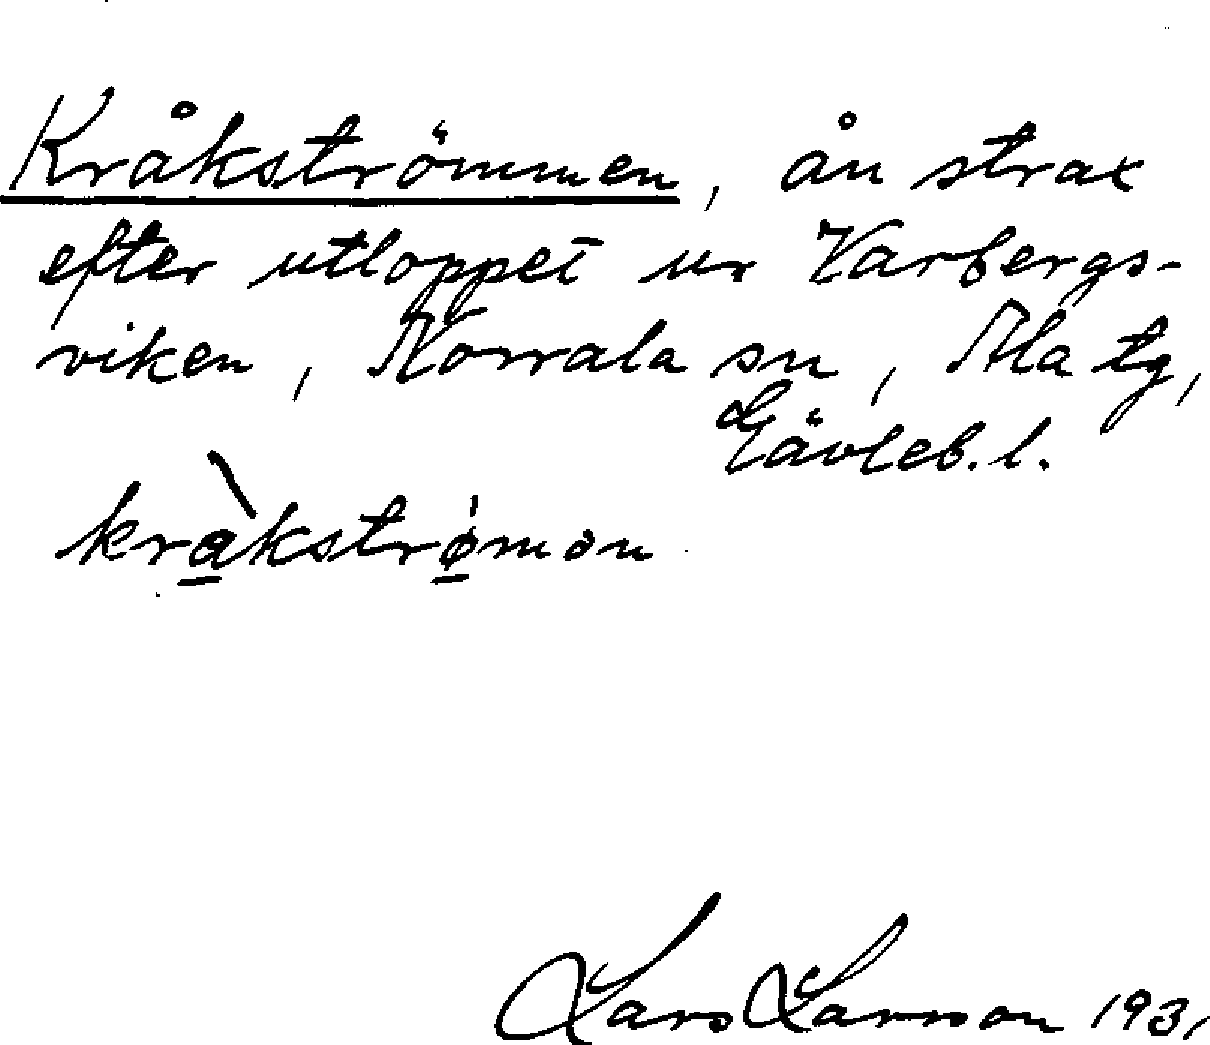 Kråkströmmen, ån strax
efter utloppet ur Varbergs-
viken, Norrala sn, Ala tg,
Gävleb. l.
kràkstrømon
Lars Larsson 1931